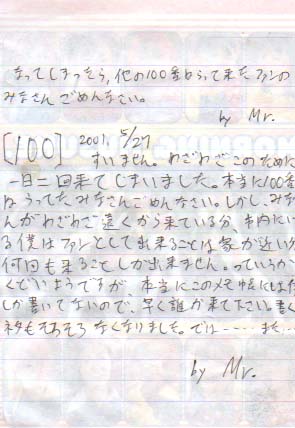 なってしまったら、他の100番ねらって来たファンの
みなさんごめんなさい。
by Mr.
[100] 2001, 5/27
すいません。わざわざこのために
一日二回来てしまいました。本当に100番
ねらってた、みなさんごめんなさい。しかし、みな
さんがわざわざ遠くから来ている分、市内にい
る僕はファンとして出来ることは家が近いから
何回も来ることしか出来ません。っていうか
くどいようですが、本当にこのメモ帳には
しか書いてないので、早く誰か来て下さい。書く
ネタもそろそろなくなりました。では……また…
by Mr.